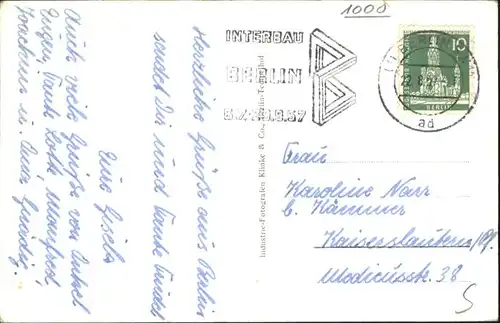 1000
INTERBAU
BERLIN
6.7.-29.9.57
10
BERLIN
ad
Herzliche Grüße aus Berlin
sendet Dir und Tante Trudel
Eure Gisela
Auch viele Grüße von Onkel
Eugen, Tante Lotte, Manfred,
Joachim u.
Industrie-Fotografen Klinke & Co., Berlin-Tempelhof
Frau
Karoline Narr
b. Kämmer
Kaiserslautern/Pf.
Modicusstr. 38
5